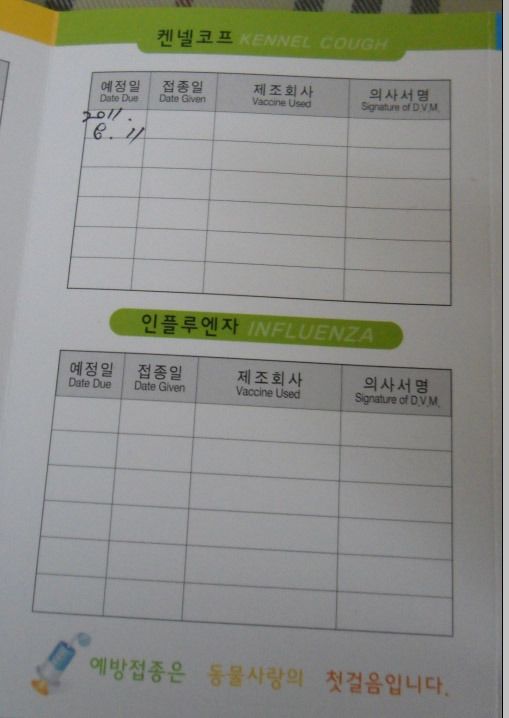 켄넬코프 KENNEL COUGH
예정일 접종일 제조회사 의사서명
Date Due Date Given Vaccine Used Signature of D.V.M.
2011.
6. 11
인플루엔자 INFLUENZA
예정일 접종일 제조회사 의사서명
Date Due Date Given Vaccine Used Signature of D.V.M.
예방접종은 동물사랑의 첫걸음입니다.